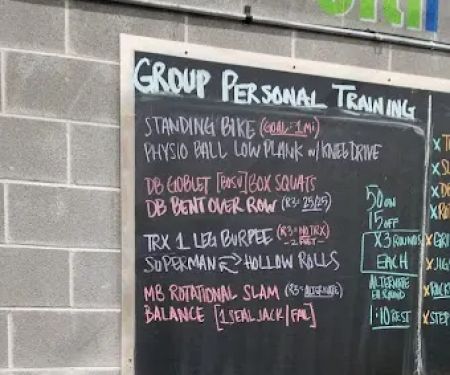 GROUP PERSONAL TRAINING
STANDING BIKE (GOAL: 1 Mi)
PHYSIO BALL LOW PLANK w/ KNEE DRIVE
DB GOBLET [BOSU] BOX SQUATS
DB BENT OVER ROW (R3= 25/25)
TRX 1 LEG BURPEE (R3= NO TRX)
-2 FEET-
SUPERMAN HOLLOW ROLLS
MB ROTATIONAL SLAM (R3= ALTERNATE)
BALANCE [1 SEAL JACK/
50 ON
15 OFF
X3 ROUNDS
EACH
ALTERNATE
EA ROUND
1:10 REST
X STEP